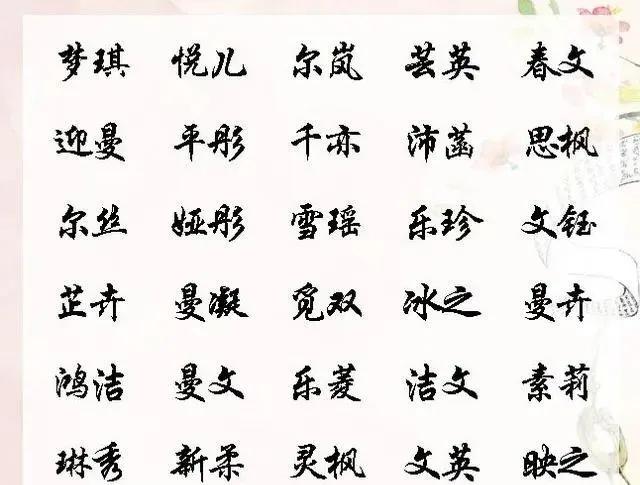 梦琪 悦儿 尔岚 芸英 春文
迎曼 平彤 千亦 沛菡 思枫
尔丝 娅彤 雪瑶 乐珍 文钰
芷卉 曼凝 觅双 冰之 曼卉
鸿洁 曼文 乐菱 洁文 素莉
琳秀 新柔 灵枫 文英 映之